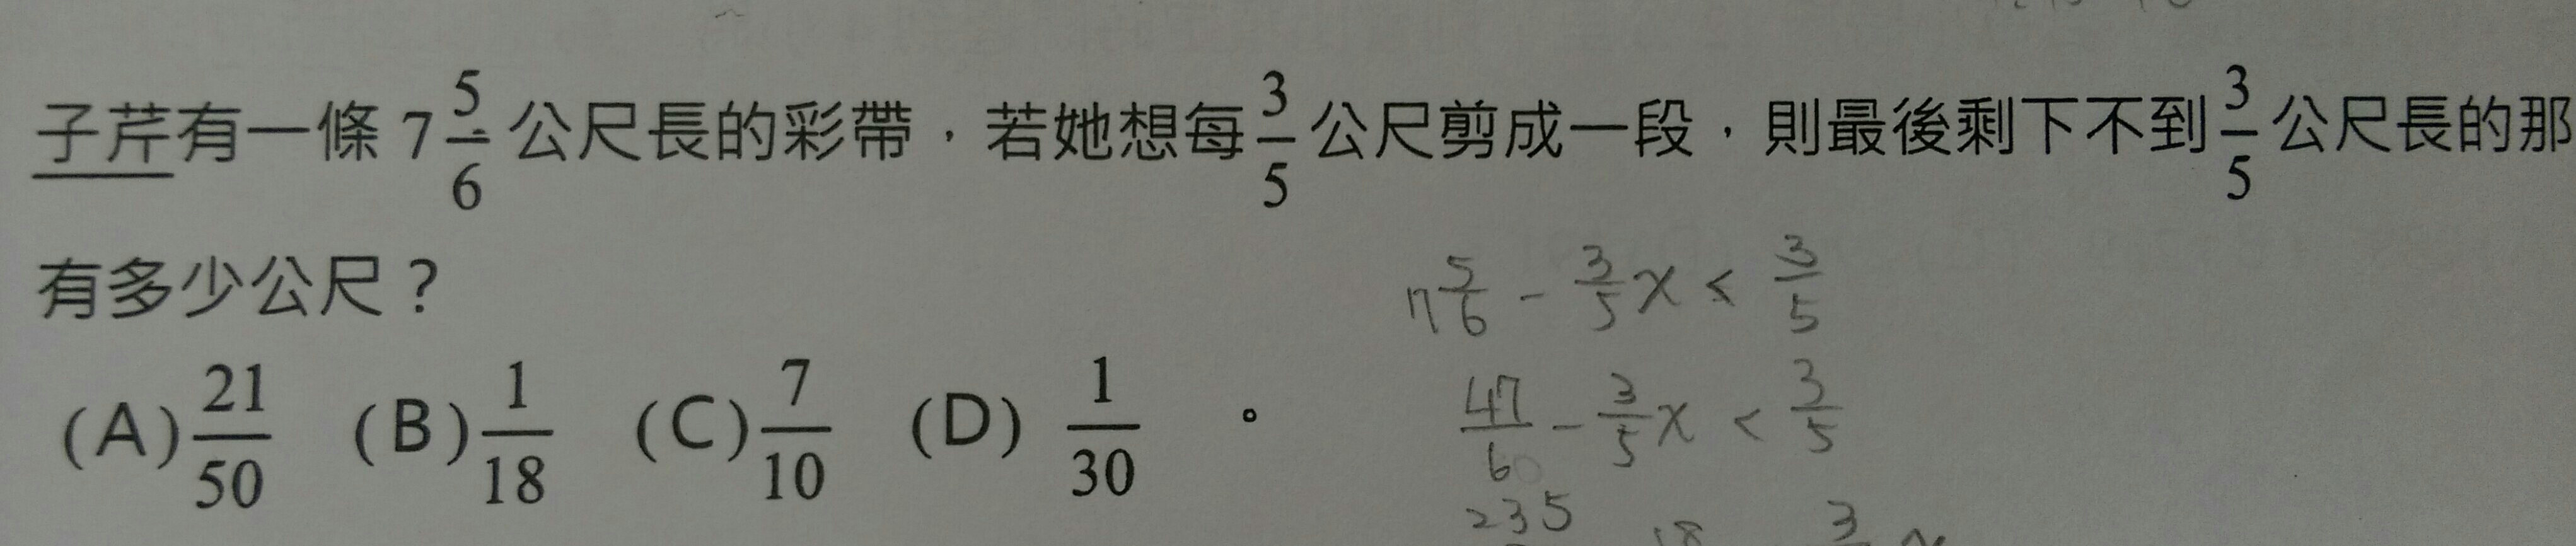 子芹有一條 7 5/6 公尺長的彩帶，若她想每 3/5 公尺剪成一段，則最後剩下不到 3/5 公尺長的那
有多少公尺？
(A) 21/50 (B) 1/18 (C) 7/10 (D) 1/30 。
7 5/6 - 3/5 x < 3/5
47/6 - 3/5 x < 3/5
235 18 3